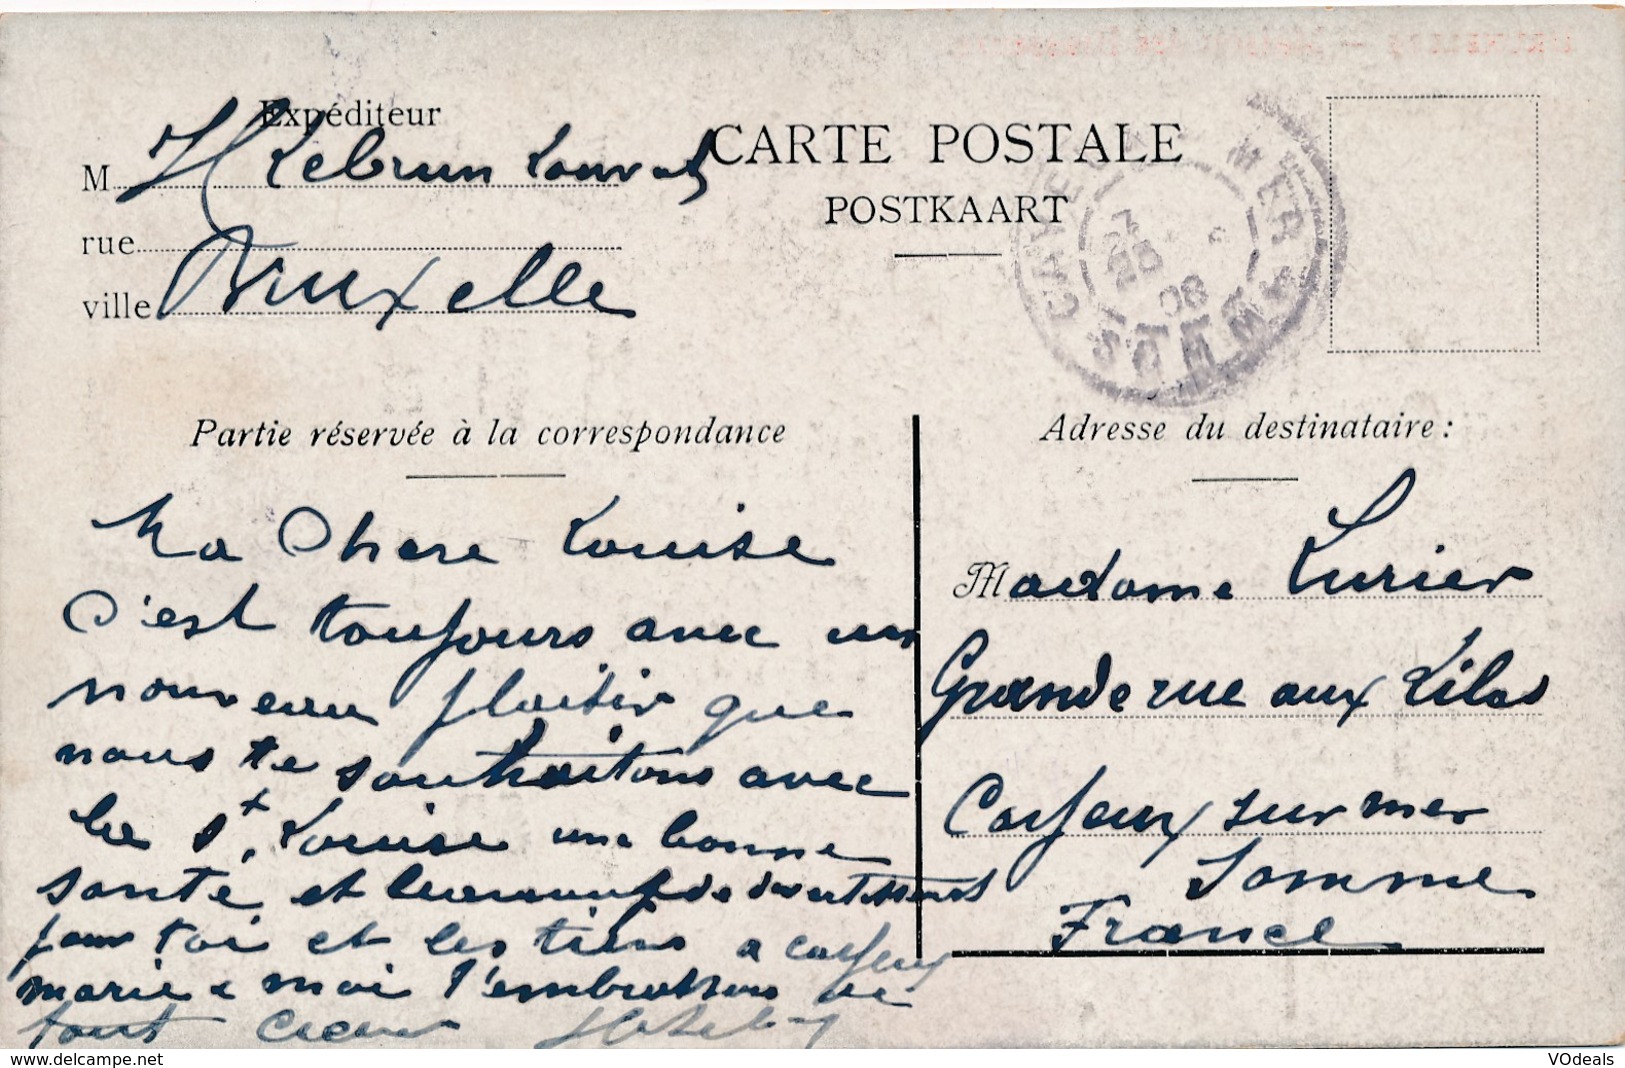 Expéditeur
M H Lebrun
rue
ville Bruxelle
CARTE POSTALE
POSTKAART
CAYEUX S MER
SOMME
08
Partie réservée à la correspondance
Ma Chere Louise
C'est toujours avec un
nouveau plaisir que
nous te souhaitons avec
la St. Louise une bonne
santé et beaucoup de divertissements
pour toi et les tiens a Cayeux
marie & moi t'embrassons de
tout coeur
Adresse du destinataire :
Madame Lurier
Grande rue aux Lilas
Cayeux sur mer
Somme
France
www.delcampe.net
VOdeals